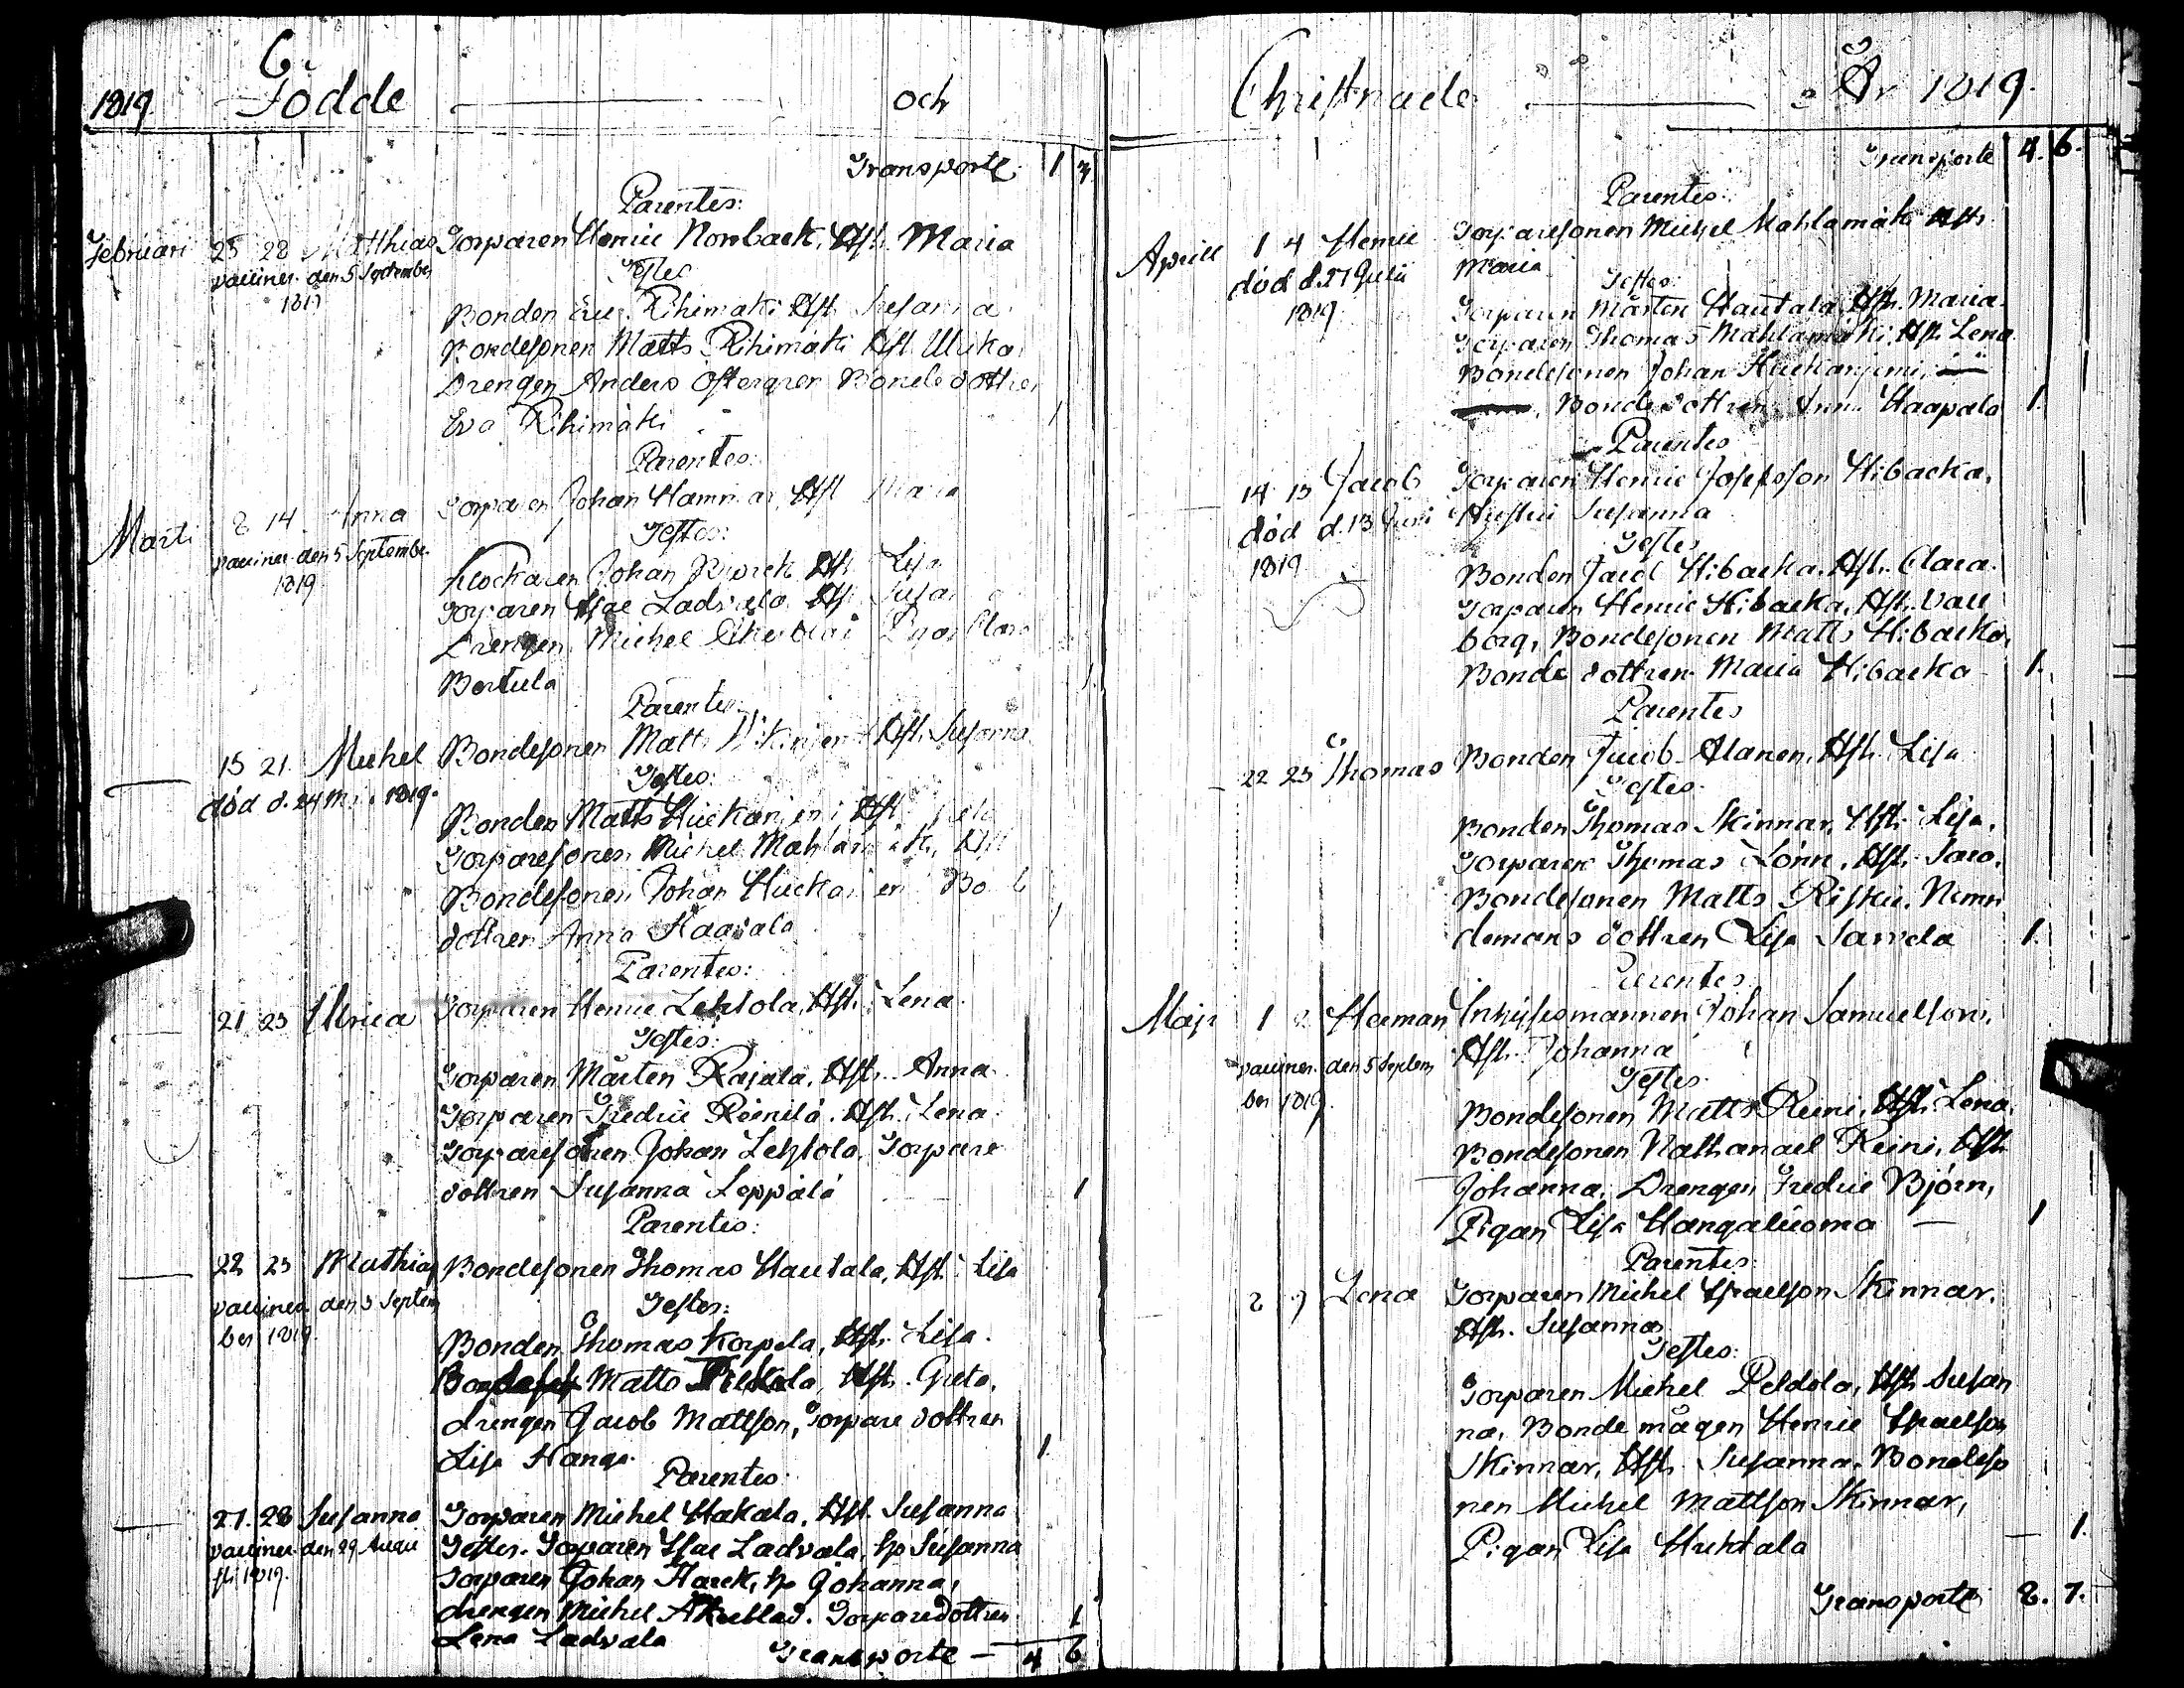 6.
1819. Födde och
Transporte 1 3
Parentes:
Februari 25 28 Matthias Torparen Henric Norrback, Hust. Maria
vacciner. den 5 September
1819
Testes
Bonden Eric Rihimäki Hust. Susanna
Bondesonen Matts Rihimäki Hust. Ulrica
Drengen Anders Östergren Bondedottren
Eva Rihimäki 1
Parentes:
Marti 8 14. Anna Torparen Johan Hammar, Hust. Maria
vaccine den 5 Septembe.
1819
Testes:
Klockaren Johan Hust. Lisa
Torparen Isac Ladvala Hust. Susanna
Drengen Michel Pigan Clara
Bertula 1.
Parentes
15 21. Michel Bondesonen Matts Hust. Susanna
död d. 24 1819.
Testes:
Bonden Matts Huckanjemi Hust.
Torparesonen Michel Mahlamäki, Hust
Bondesonen Johan Bonde
dottren Anna Haapala 1
Parentes:
21 25 Ulrica Torparen Henric Lehtola, Hust. Lena
Testes:
Torparen Mårten Rajala, Hust. Anna
Torparen Fredric Reinilä. Hust. Lena
Torparesonen Johan Lehtola, Torpare
dottren Susanna Leppälä 1
Parentes:
22 25 Mathias Bondesonen Thomas Hautala, Hust. Lisa
vacciner. den 5 Septem
ber 1819.
Testes:
Bonden Thomas Korpela, Hust. Lisa.
Matts Hust. Greta,
drengen Jacob Mattson, Torpare dottren
Lisa Hanga. 1.
Parentes:
27. 28 Susanna Torparen Michel Hakala, Hust. Susanna
vacciner. den 29 Augu
sti 1819.
Testes. Torparen Isac Ladvala, h. Susanna
Torparen Johan Harck, h. Johanna,
drengen Michel Åkerblad. Torparedottren 1
Lena Ladvala
Transporte — 4 6
Christnade År 1819.
Transporte 4. 6.
Parentes:
Aprill 1 4 Henric Torparesonen Michel Mahlamäki Hust.
död d. 27 Julii
1819
Maria
Testes:
Torparen Mårten Hautala, Hust. Maria.
Torparen Thomas Mahlamäki, Hust. Lena
Bondesonen Johan Huckanjemi,
Bondedottren Anna Haapala 1.
Parentes
14 15 Jacob Torparen Henric Josefsson Hibacka,
död d. 13 Juni
1819
Hustru Susanna
Testes
Bonden Jacob Hibacka, Hust. Clara.
Torparen Henric Hibacka, Hust. Val
borg, Bondesonen Matts Hibacka,
Bonde dottren Maria Hibacka 1.
Parentes
22 25 Thomas Bonden Jacob Alanen, Hust. Lisa
Testes.
Bonden Thomas Skinnar, Hust. Lisa,
Torparen Thomas Lönn, Hust. Sara,
Bondesonen Matts Risku, Nämn
demans dottren Lisa Sarvela 1.
Parentes
Maji 1 2 Herman Inhysesmannen Johan Samuelson,
vacciner. den 5 Septem
ber 1819.
Hust. Johanna
Testes.
Bondesonen Matts Reini, Hust. Lena,
Bondesonen Nathanael Reini, Hust.
Johanna, Drengen Fredric Björn,
Pigan Lisa Hangaluoma — 1
Parentes
8 9 Lena Torparen Michel Israelson Skinnar,
Hust. Susanna
Testes:
Torparen Michel Peldola, Hust. Susan
na, Bonde mågen Henric Israelson
Skinnar, Hust. Susanna, Bondeso
nen Michel Mattson Skinnar,
Pigan Lisa Huhtala — 1.
Transporte 8. 7.